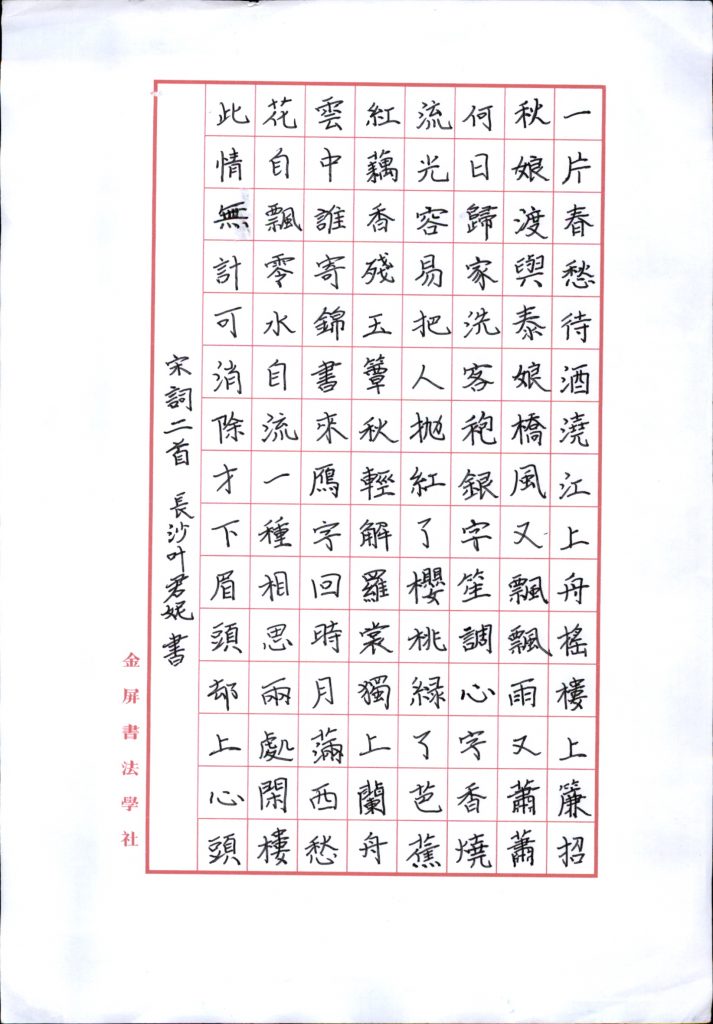 一片春愁待酒澆江上舟搖樓上簾招
秋娘渡與泰娘橋風又飄飄雨又蕭蕭
何日歸家洗客袍銀字笙調心字香燒
流光容易把人拋紅了櫻桃緑了芭蕉
紅藕香殘玉簟秋輕解羅裳獨上蘭舟
雲中誰寄錦書來鴈字回時月滿西愁
花自飄零水自流一種相思兩處閑樓
此情無計可消除才下眉頭却上心頭
宋詞二首 長沙叶君妮書
金屏書法學社